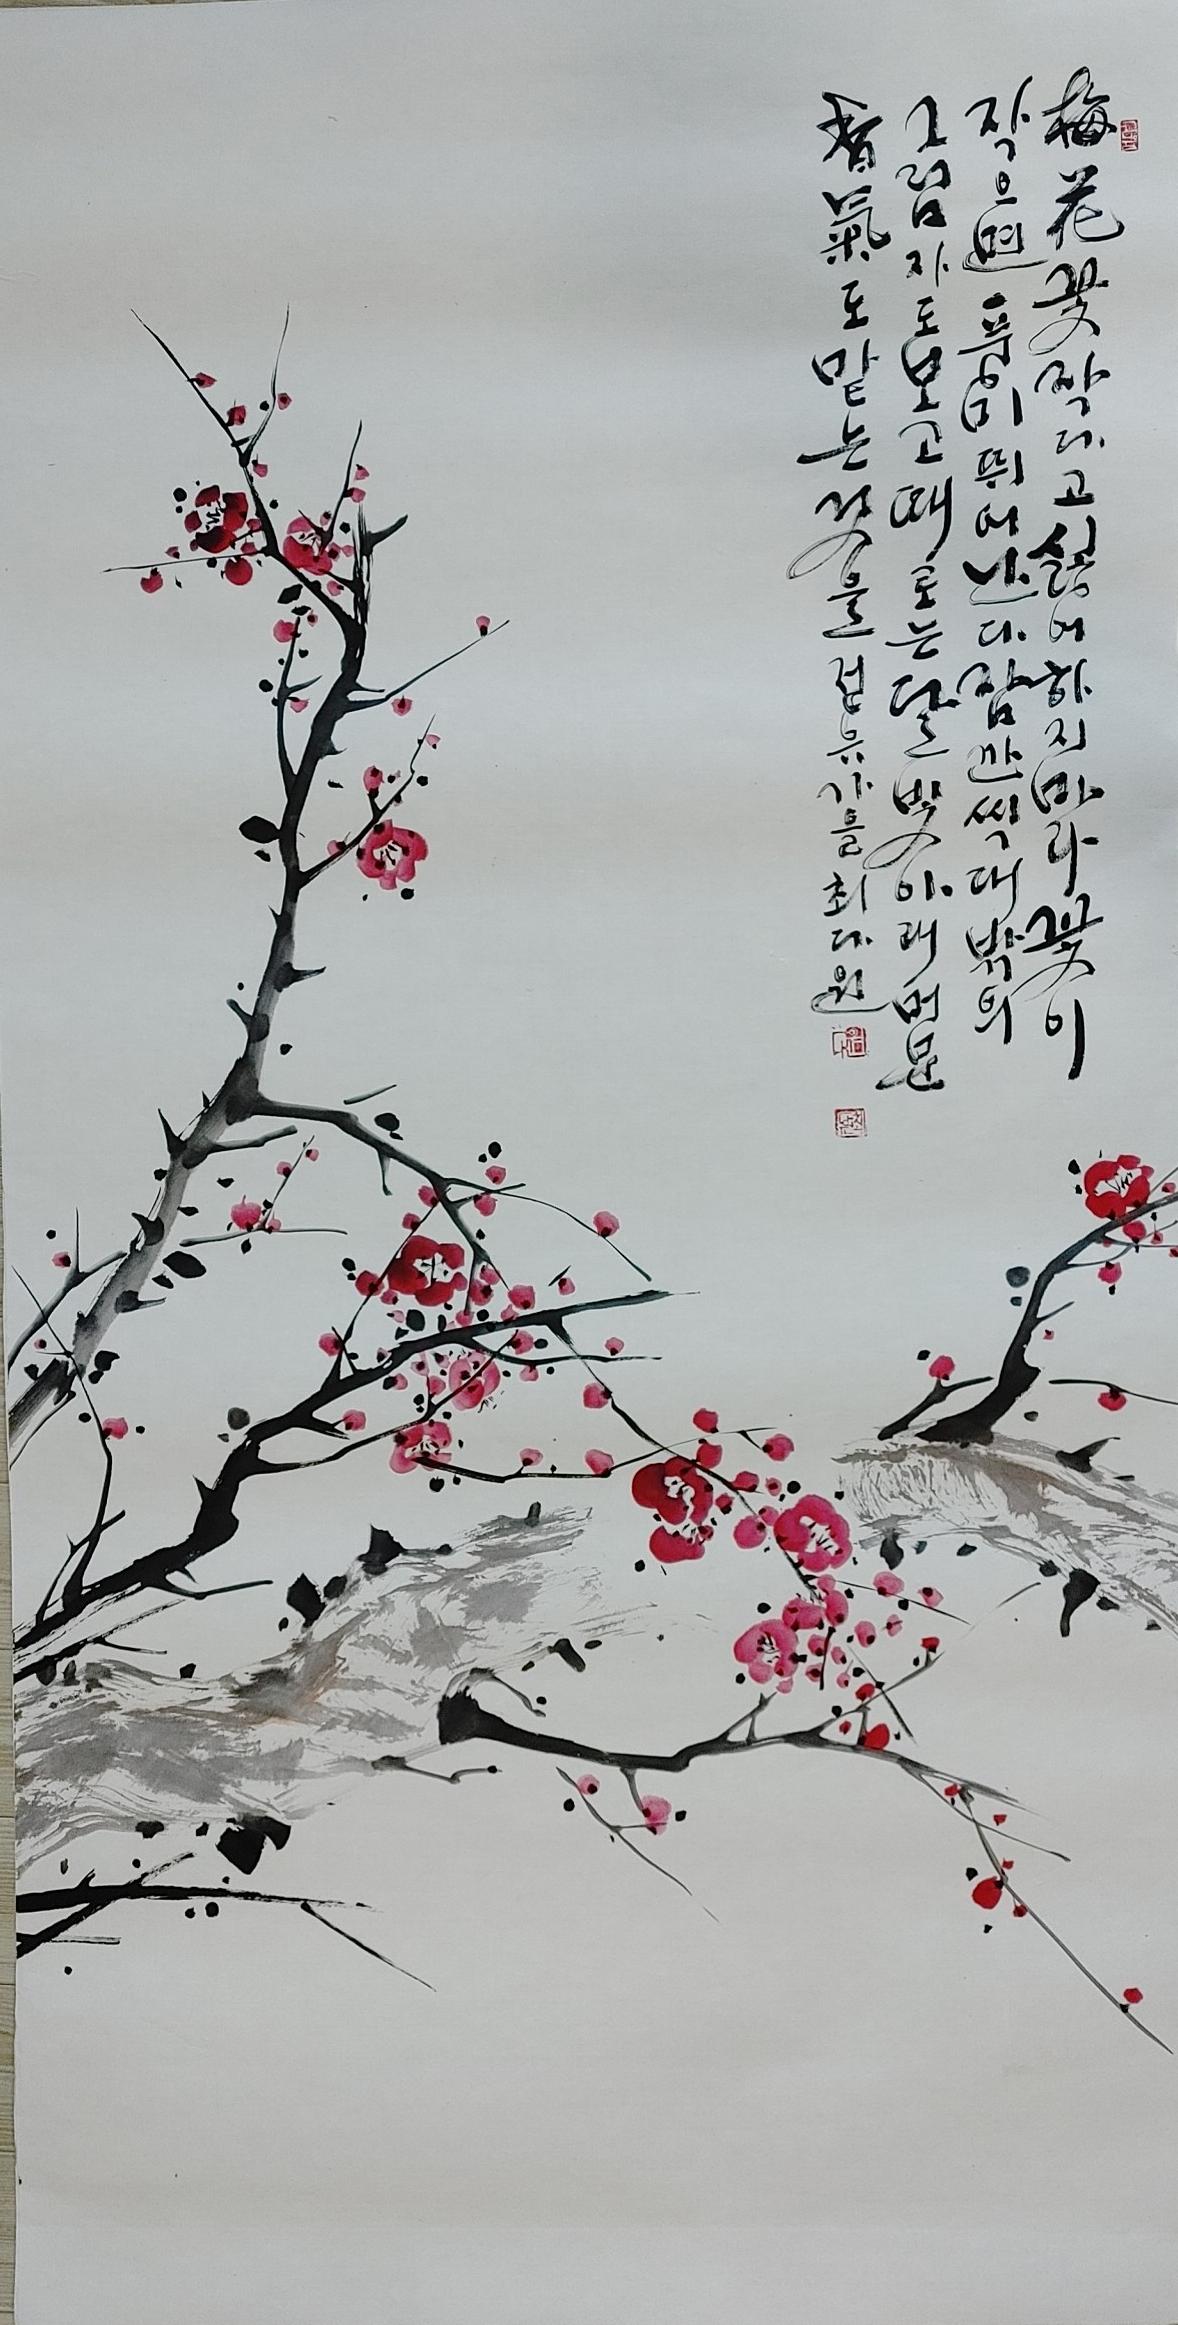 梅花꽃 작다고 싫어하지 마라 꽃이
작으면 품미 뛰어난다 잠깐씩 대밖의
그림자도 보고 때로는 달빛 아래 머문
香氣도 맡는 것을
최다원